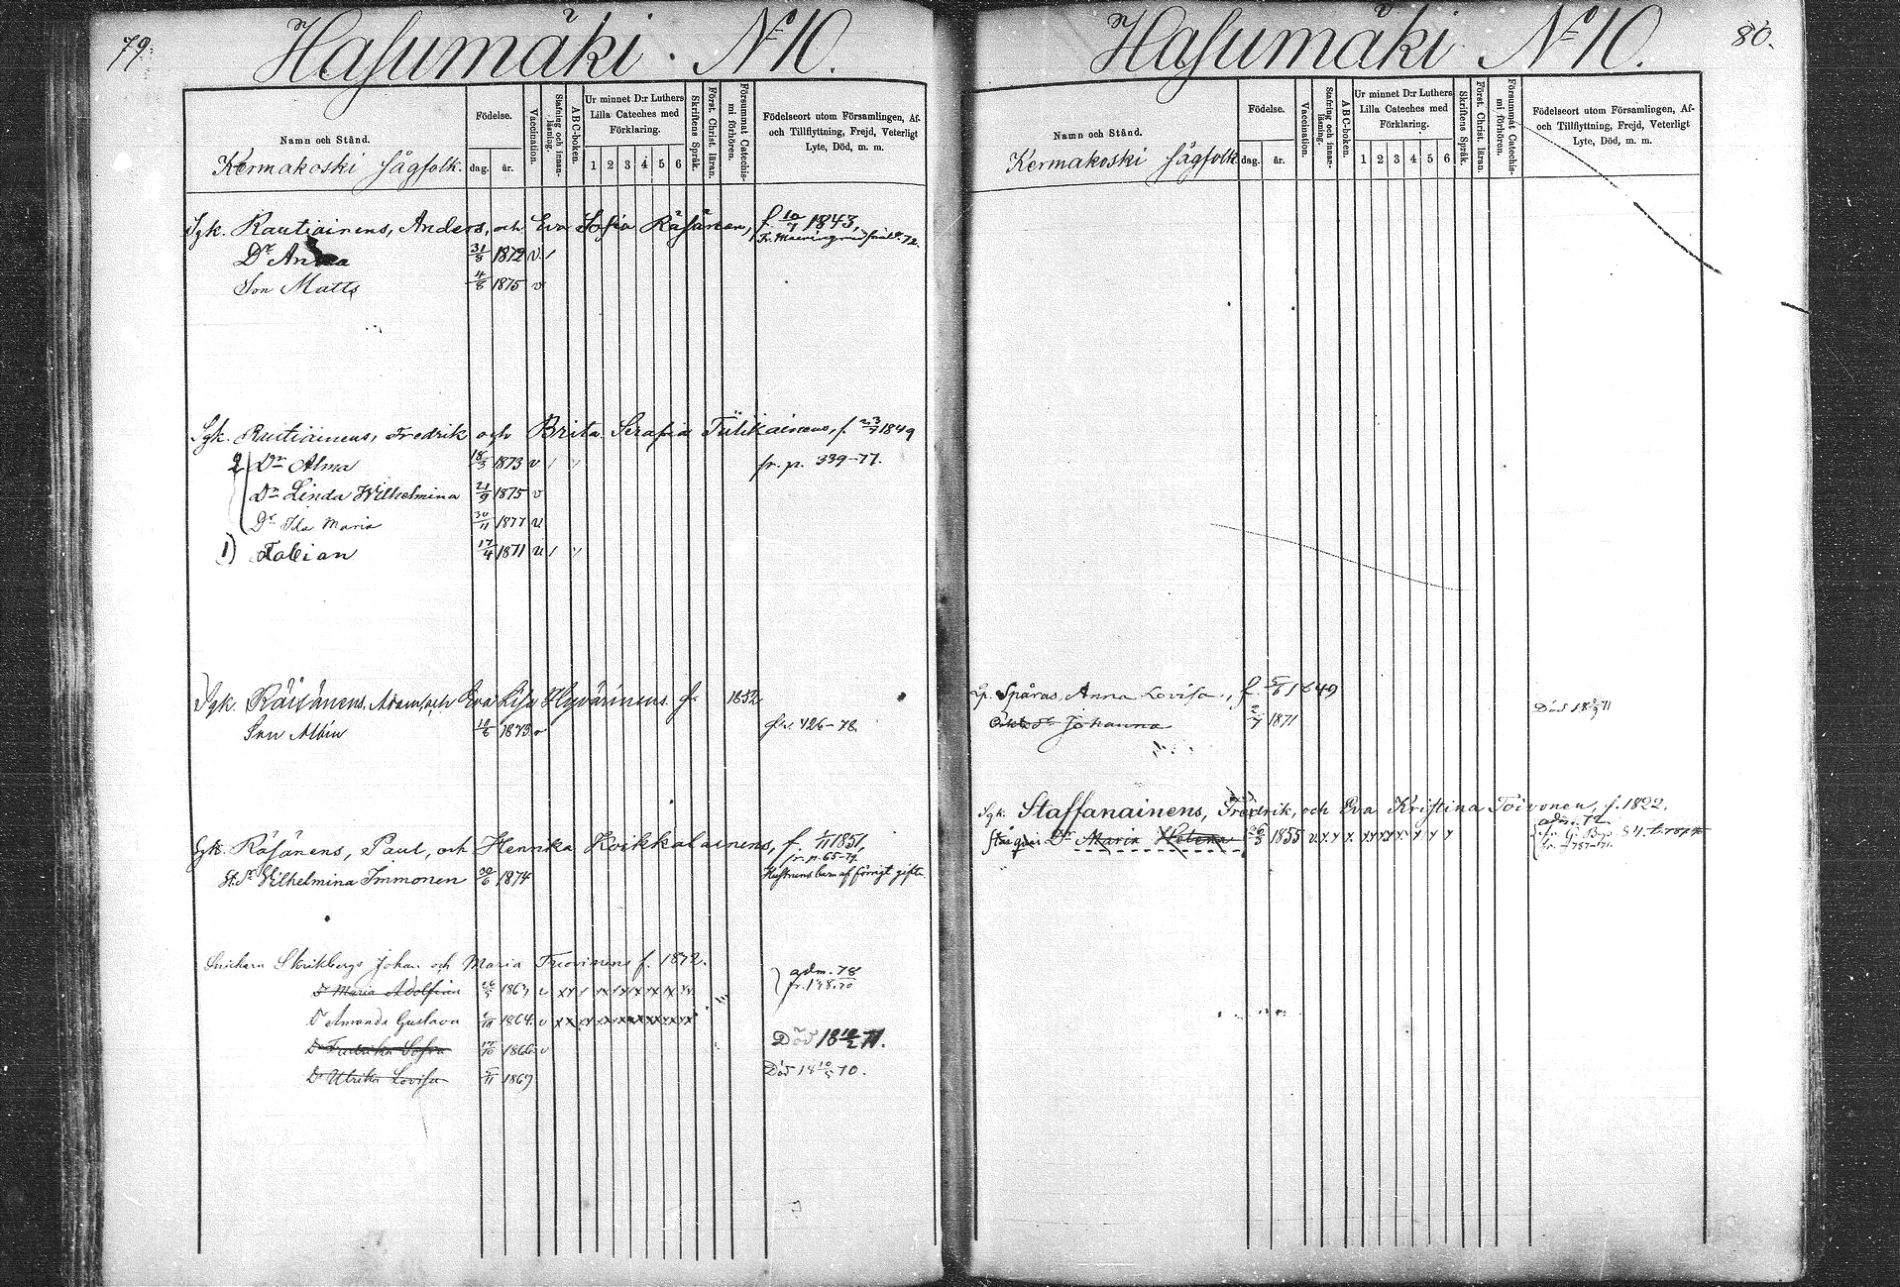 79.
Hasumäki. No 10.
Namn och Stånd.
Kermakoski Sågfolk.
Födelse.
dag. år.
Vaccination.
Stafning och innanläsning.
ABC-boken.
Ur minnet D:r Luthers Lilla Cateches med Förklaring.
1 2 3 4 5 6
Skriftens Språk.
Först. Christ. läran.
Försummat Catechismi förhören.
Födelseort utom Församlingen, Af- och Tillflyttning, Frejd, Veterligt Lyte, Död, m. m.
Sgk. Rautiainens, Anders, och Eva Sofia Räsänen, f. 10/7 1843,
Dr Anna 31/8 1872 v /
Son Matts 4/8 1875 v
Sgk. Rautiainens, Fredrik och Brita Serafia Tiilikainens, f. 23/7 1849
2 Dr Alma 18/3 1873 v / fr. p. 339-77.
Dr Linda Wilhelmina 21/9 1875 v
Dr Ida Maria 30/11 1877 v
1) Fabian 17/4 1871 v /
Sgk. Räisänens, Adam, och Eva Lisa Hyvärinens f. 1852
Son Albin 10/6 1873 v 426-78
Sgk. Räsänens, Paul, och Henrika Koikkalainens, f. 1/11 1851,
fr. p. 65-79.
St. Dr Wilhelmina Immonen 30/6 1874
Snickarn Skrikbergs Johan och Maria f. 1872.
adm. 78
Dr Maria Adolfina 1863 v
Dr Amanda Gustava 1864 v
Dr Fredrika Sofia 17/10 1866 v Död 18 18/2 71.
Dr Ulrika Lovisa 5/11 1869 Död 18 10/5 70.
80.
Hasumäki No 10.
Namn och Stånd.
Kermakoski Sågfolk
Födelse.
dag. år.
Vaccination.
Stafning och innanläsning.
ABC-boken.
Ur minnet D:r Luthers Lilla Cateches med Förklaring.
1 2 3 4 5 6
Skriftens Språk.
Först. Christ. läran.
Försummat Catechismi förhören.
Födelseort utom Församlingen, Af- och Tillflyttning, Frejd, Veterligt Lyte, Död, m. m.
Spåras, Anna Lovisa, f. 5/6 1849
Johanna 2/7 1871
Sgk. Staffanainens, Fredrik, och Eva Kristina Toivonen, f. 1822.
adm. 72
Dr Maria Helena 26/3 1855